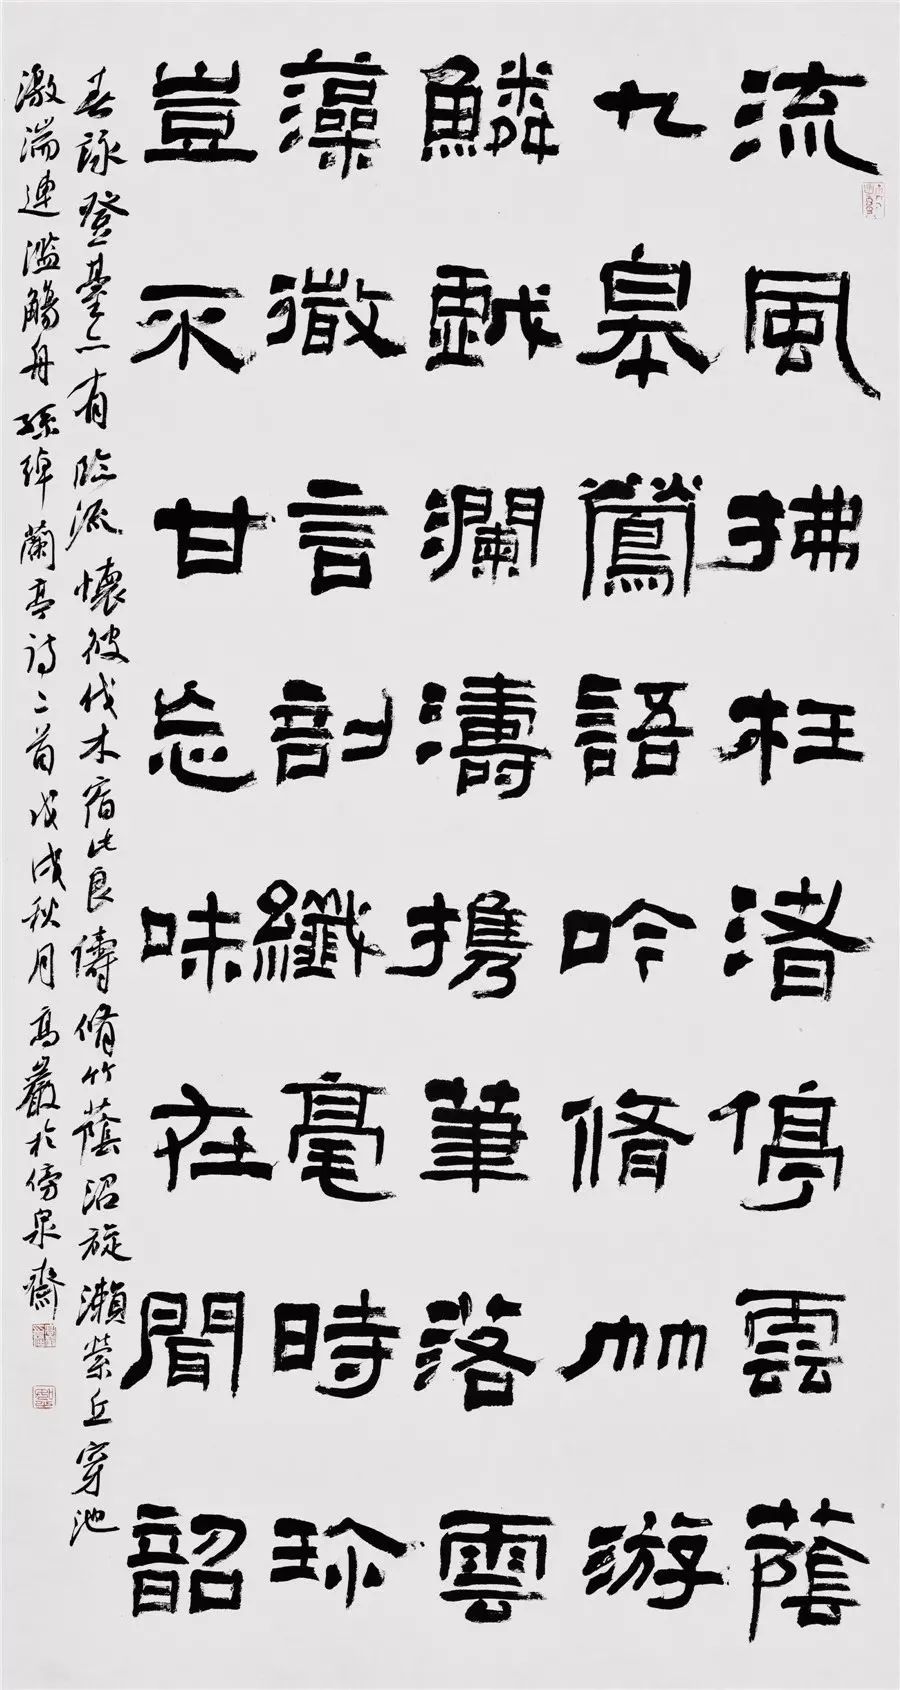 流風拂枉渚停雲蔭
九皋鶯語吟脩竹游
鱗戲瀾濤攜筆落雲
藻微言剖纖毫時珍
豈不甘忘味在聞韶
春詠登臺亦有臨流懷彼伐木宿此良儔脩竹蔭沼旋瀨縈丘穿池
激湍連濫觴舟孫綽蘭亭詩二首戊戌秋月高嚴於傍泉齋